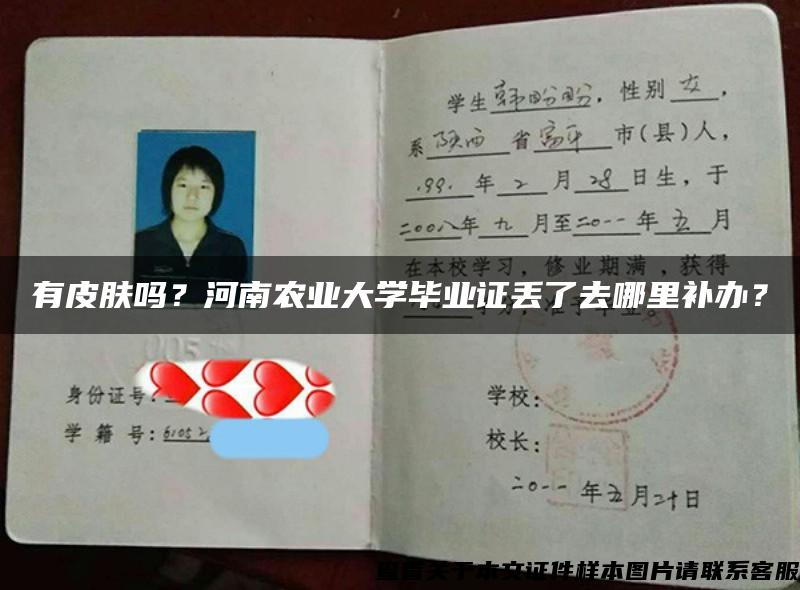 学生韩盼盼，性别女，
系陕西省富平市(县)人，
1991年2月28日生，于
二00八年九月至二0一一年五月
在本校学习，修业期满，获得
有皮肤吗？河南农业大学毕业证丢了去哪里补办？
身份证号：
学籍号：61052
学校：
校长：
二0一一年五月二十日
查看关于本文证件样本图片请联系客服